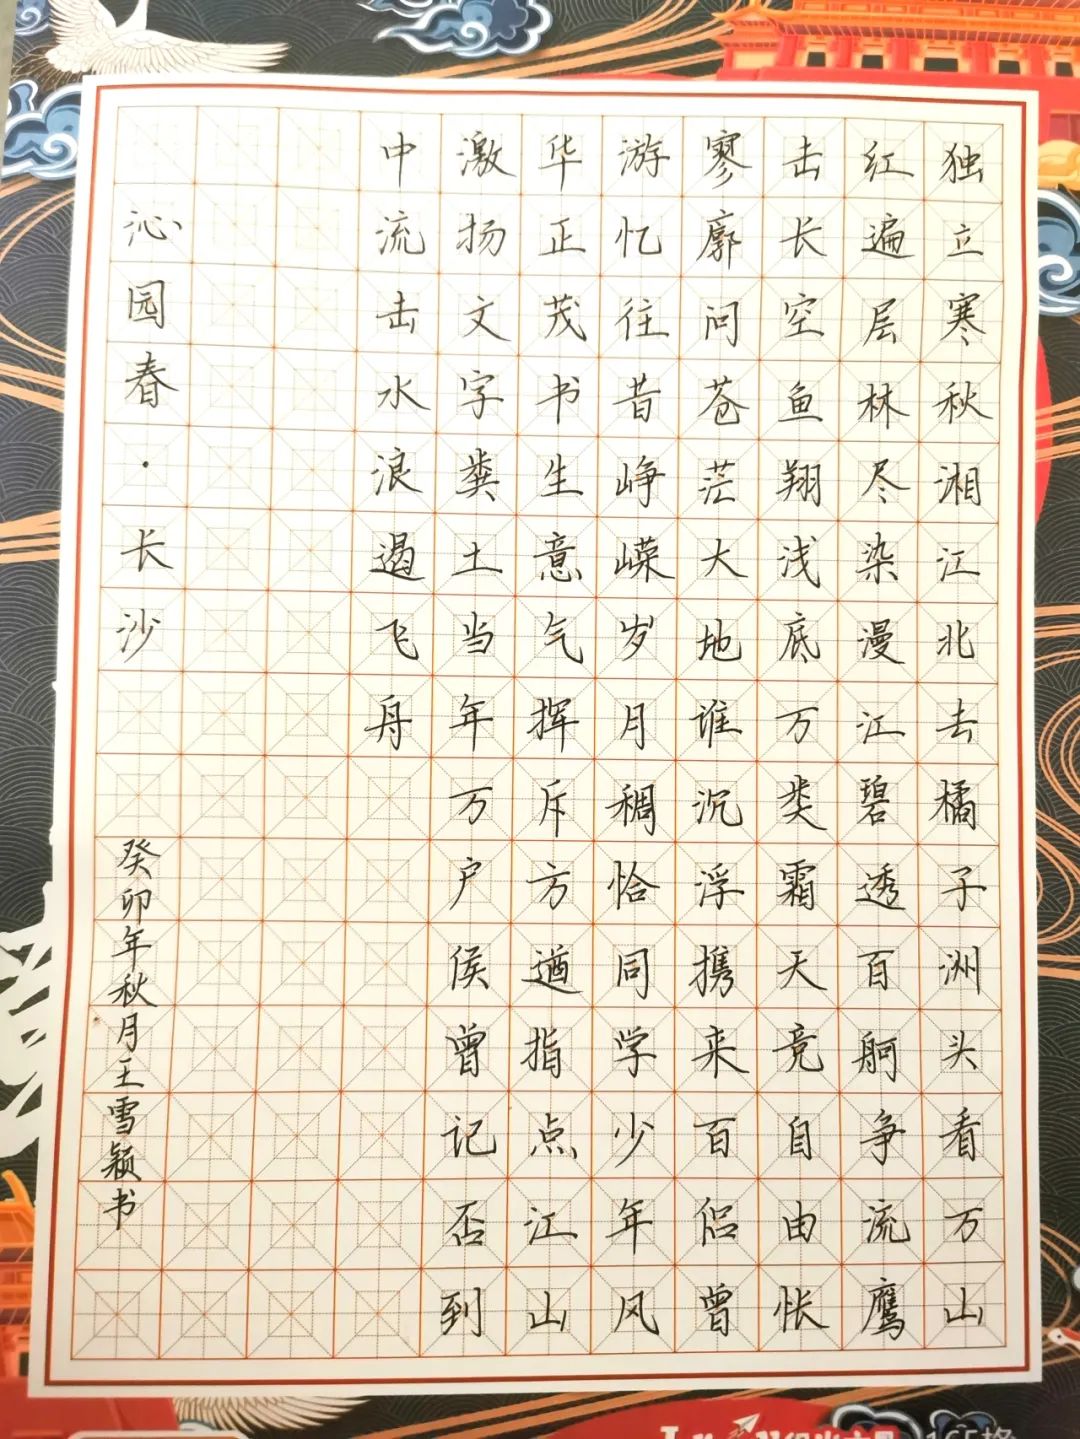 独立寒秋湘江北去橘子洲头看万山
红遍层林尽染漫江碧透百舸争流鹰
击长空鱼翔浅底万类霜天竞自由怅
寥廓问苍茫大地谁沉浮携来百侣曾
游忆往昔峥嵘岁月稠恰同学少年风
华正茂书生意气挥斥方遒指点江山
激扬文字粪土当年万户侯曾记否到
中流击水浪遏飞舟
沁园春·长沙
癸卯年秋月王雪颖书
165格